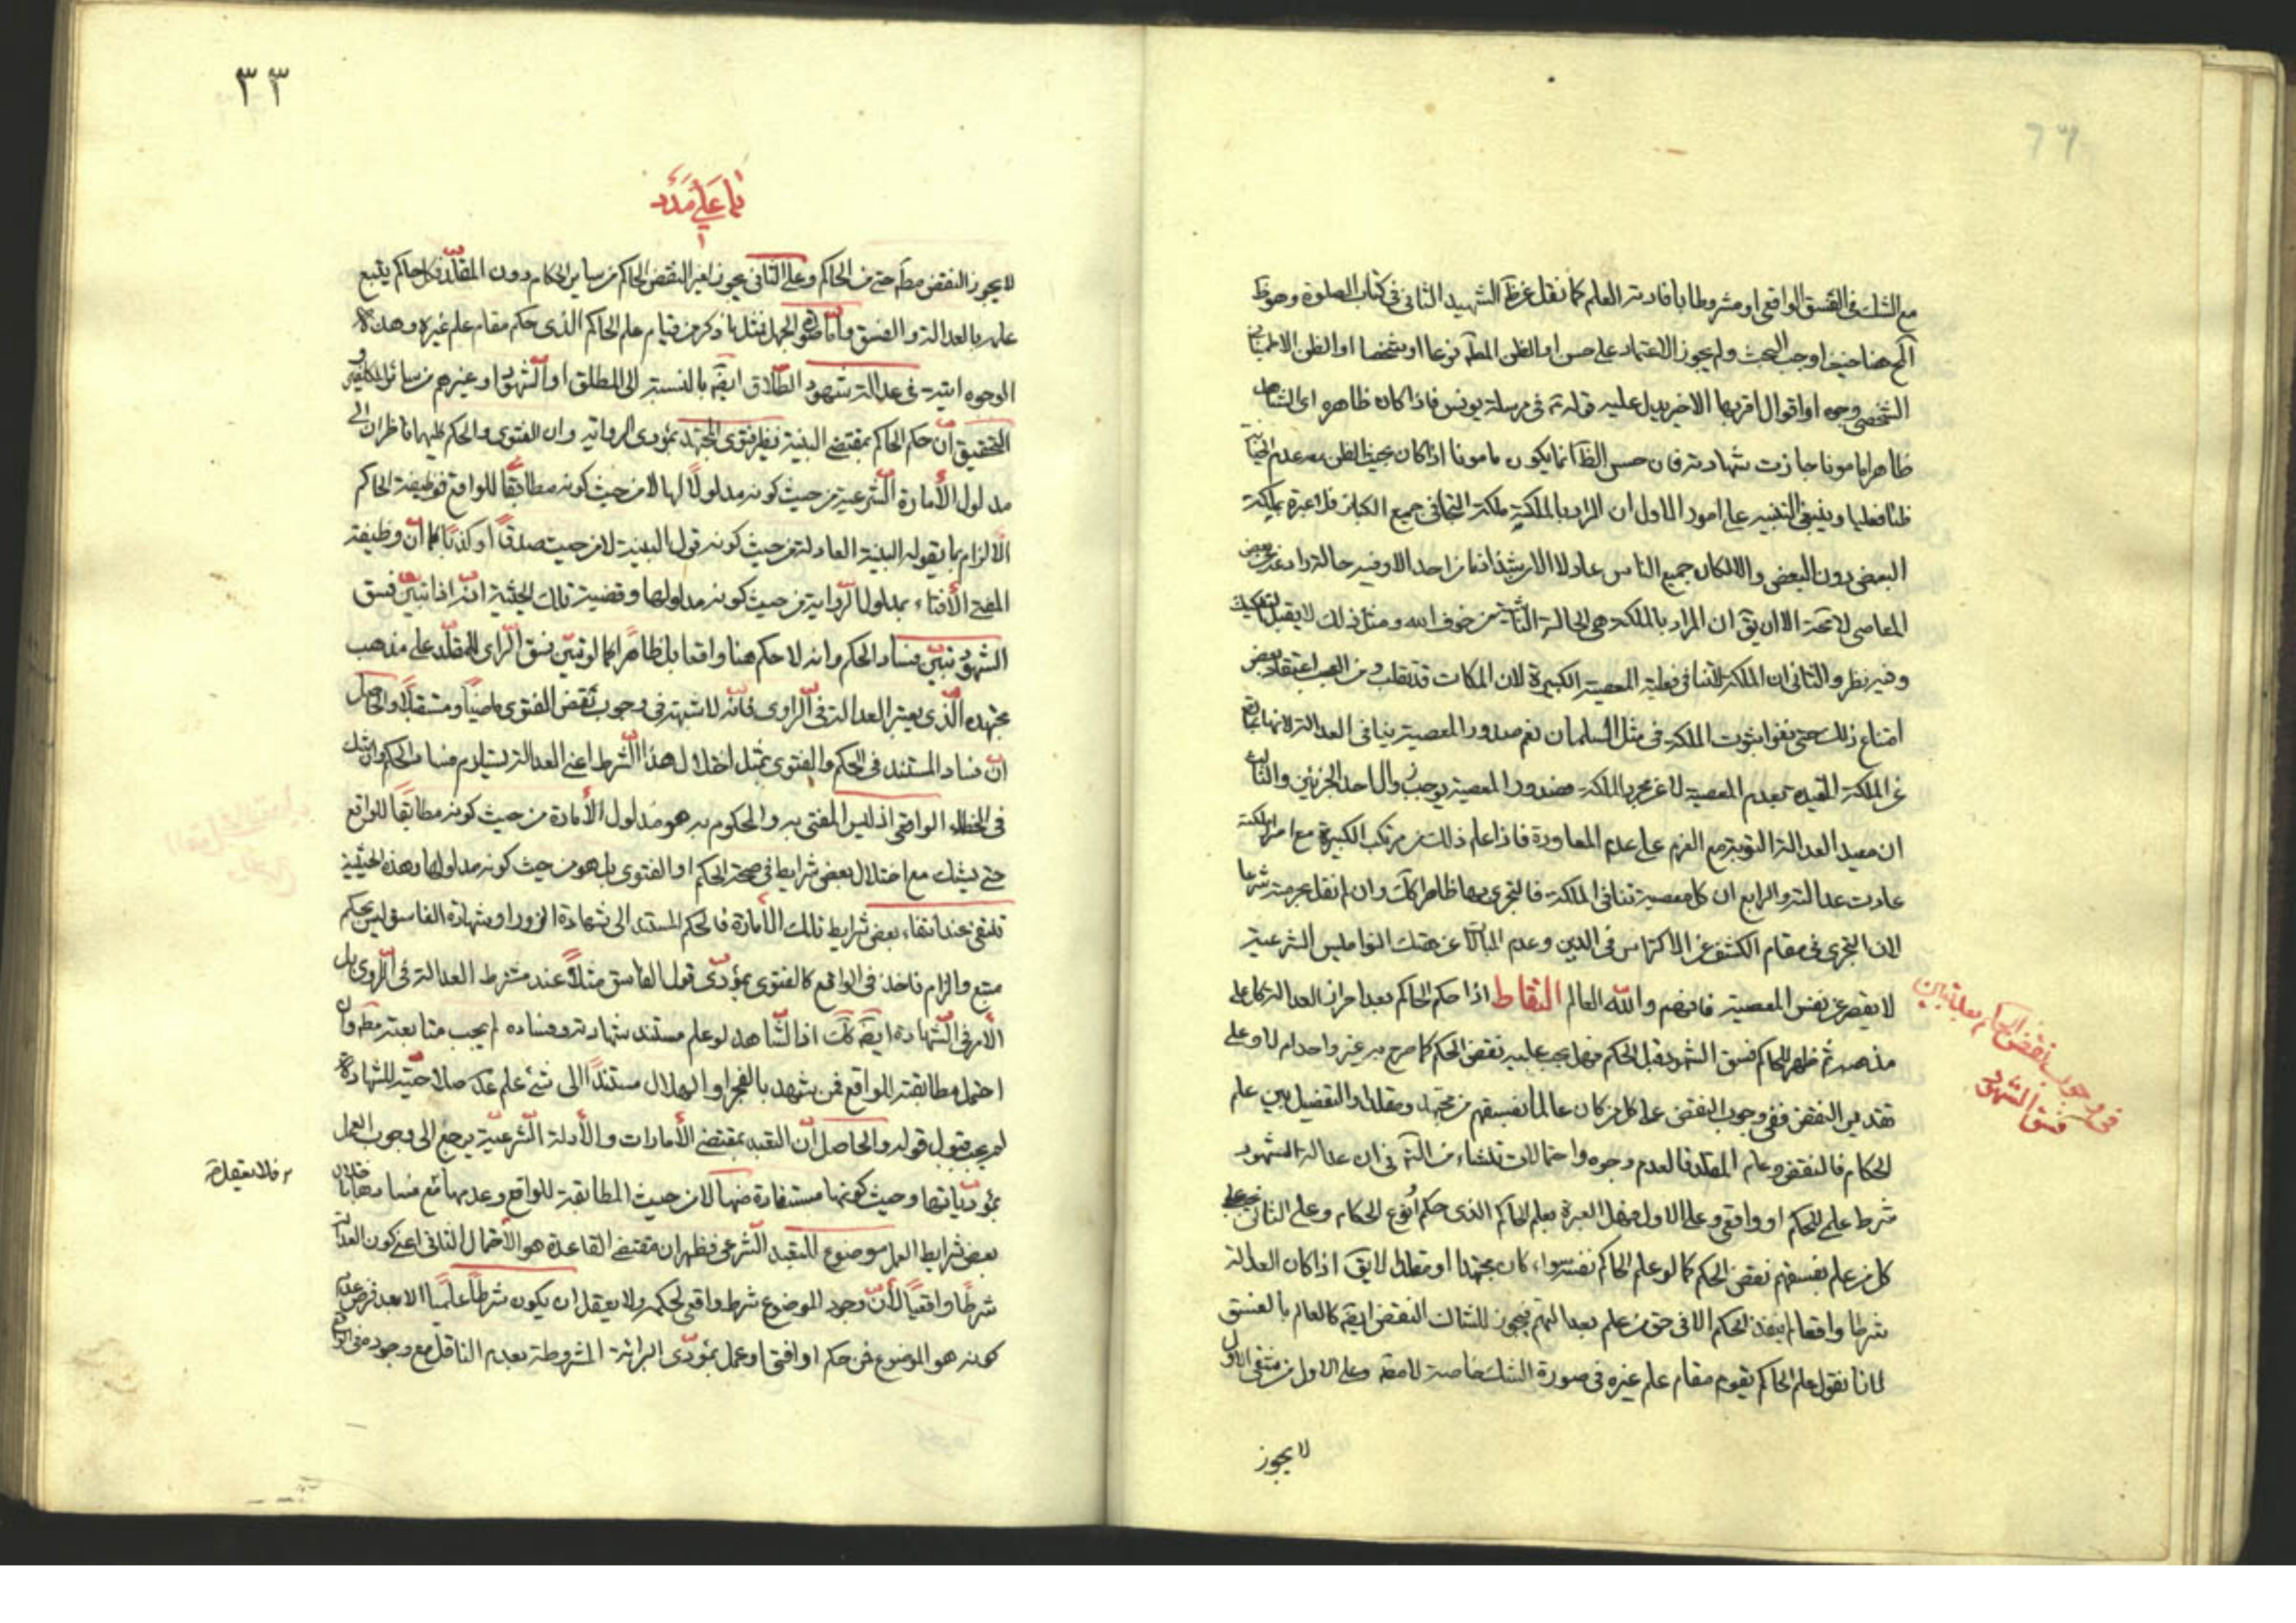 مع الشك فى الفسق الواقعى او مشروطا بافادته العلم كما نقل عن ظ الشهيد الثانى فى كتاب الصلوة وهو ظ
اوجب البحث ولم يجوز الاعتماد على حسن او الظن المطلق نوعا او شخصا او الظن الاطمينانى
الشخصى وجوه او اقوال اقربها الاخير يدل عليه قوله ع فى مرسلة يونس فاذا كان ظاهره اى الشاهد
ظاهرا مامونا جازت شهادته فان حسن الظ انما يكون مامونا اذا كان بحيث الظن معه عدم
ظنا فعليا وينبغى التنبيه على امور الاول ان المراد بالملكة ملكة فى جميع الكبائر فلا عبرة بملكة
البعض دون البعض والا لكان جميع الناس عادلا الا من شذ فما من احد الا وفيه حالة رادعة عن بعض
المعاصى لا محة الا ان يق ان المراد بالملكة هى الحالة من خوف الله ومثل ذلك لا يقبل التفكيك
وفيه نظر والثانى ان الملكة لا تنافى فعلية المعصية الكبيرة لان الملكات قد تغلب ومن العجب اعتقاد بعض
امتناع ذلك حتى نفوا ثبوت الملكة فى مثل السلمان نعم صدور المعصية ينافى العدالة لانها عبارة
عن الملكة المقيدة بعدم المعصية لا عن مجرد الملكة فصدور المعصية يوجب زوال احد الجزئين والثالث
ان معيد العدالة التوبة مع العزم على عدم المعاودة فاذا علم ذلك من مرتكب الكبيرة مع احراز الملكة
عادت عدالته والرابع ان كل معصية تنافى الملكة فالتجرى بها ظاهرا كك وان لم نقل بحرمته شرعا
لان التجرى فى مقام الكشف عن الاكتراس فى الدين وعدم المبالاة عن هتك النواميس الشرعية
لا يقصر عن نفس المعصية فافهم والله العالم التقاط اذا حكم الحاكم بعد احراز العدالة كل على
مذهبه ثم ظهر للحاكم فسق الشهود قبل الحكم فهل يجب عليه نقض الحكم كما صرح به غير واحد ام لا وعلى
تقدير النقض ففى وجوب النقض على كل من كان عالما بفسقهم من مجتهد ومقلد او التفصيل بين علم
الحكام فالنقض وعلم المقلد فالعدم وجوه واحتمالات تنشاء من ان عدالة الشهود
شرط علمى للحكم او واقعى وعلى الاول فهل العبرة بعلم الحاكم الذى حكم او نوع الحكام وعلى الثانى يجب على
كل من علم بفسقهم نقض الحكم كما لو علم الحاكم نفسه سواء كان مجتهدا او مقلدا لا يق اذا كان العدالة
شرطا واقعا لم ينفذ الحكم الا فى حق من علم بعدالتهم فيجوز للشاك النقض ايضه كالعالم بالفسق
لانا نقول علم الحاكم يقوم مقام علم غيره فى صورة الشك خاصة لا مطه وعلى الاول من شقى الاول
لا يجوز
فى وجوب نقض الحكم بعد تبين
فسق الشهود
٣٣
لا يجوز النقض مطه حتى من الحاكم وعلى الثانى يجوز لغير النقض الحاكم من ساير الحكام دون المقلد فكل حاكم يتبع
علمه بالعدالة والفسق واما صور الجهل فمثل ما ذكر من قيام علم الحاكم الذى حكم مقام علم غيره وهذه
الوجوه اتية فى عدالة شهود الطلاق ايضه بالنسبة الى المطلق او الشهود او غيرهم من سائر المكلفين و
التحقيق ان حكم الحاكم بمقتضى البينة نظير فتوى المجتهد بمؤدى الرواية وان الفتوى والحكم كليهما ناظران الى
مدلول الأمارة الشرعية من حيث كونه مدلولا لها لا من حيث كونه مطابقا للواقع فوظيفة الحاكم
الالزام بما يقوله البينة العادلة من حيث كونه قول البينة لا من حيث صدقا او كذبا كما ان وظيفة
المفتى الأفتاء بمدلول الرواية من حيث كونه مدلولها وقضية تلك الحيثية انه اذا تبين فسق
الشهود تبين فساد الحكم وانه لا حكم هنا واقعا بل ظاهرا كما لو تبين فسق الراوى للمقلد على مذهب
مجتهده الذى يعتبر العدالة فى الراوى فانه لا شبهة فى وجوب نقض الفتوى ماضيا ومستقبلا والحاصل
ان فساد المستند فى الحكم والفتوى بمثل اختلال هذا الشرط اعنى العدالة يستلزم فساد الحكم وان شك
فى الخطاء الواقعى اذ ليس المفتى به والمحكوم به هو مدلول الأمارة من حيث كونه مطابقا للواقع
حتى يشك مع اختلال بعض شرايط فى صحة الحكم او الفتوى بل هو من حيث كونه مدلولها وهذه الحيثية
تنتفى عند انتفاء بعض شرايط تلك الأمارة فالحكم المستند الى شهادة الزور او شهادة الفاسق ليس بحكم
متبع والزام نافذ فى الواقع كالفتوى بمؤدى قول الفاسق مثلا عند مشترط العدالة فى الراوى بل
الأمر فى الشهادة ايضه كك اذ الشاهد لو علم مستند شهادته وفساده لم يجب متابعته مطه وان
احتمل مطابقته للواقع فمن شهد بالفجر او الهلال مستندا الى شئ علم عدم صلاحيته للشهادة
لم يجب قبول قوله والحاصل ان التعبد بمقتضى الأمارات والأدلة الشرعية يرجع الى وجوب العمل
بمؤدياتها وحيث كونها مستفادة منها لا من حيث المطابقة للواقع وعدمها مع فسادها باختلال
بعض شرايط العمل موضوع للتعبد الشرعى فظهر ان مقتضى القاعدة هو الأحتمال الثانى اعنى كون العدالة
شرطا واقعيا لأن وجود الموضوع شرط واقعى لحكمه ولا يعقل ان يكون شرطا علميا الا بعد فرض عدم
كونه هو الموضوع فمن حكم او افتى او عمل بمؤدى البرائة المشروطة بعدم الناقل مع وجوده فى الواقع
فلا يعقل